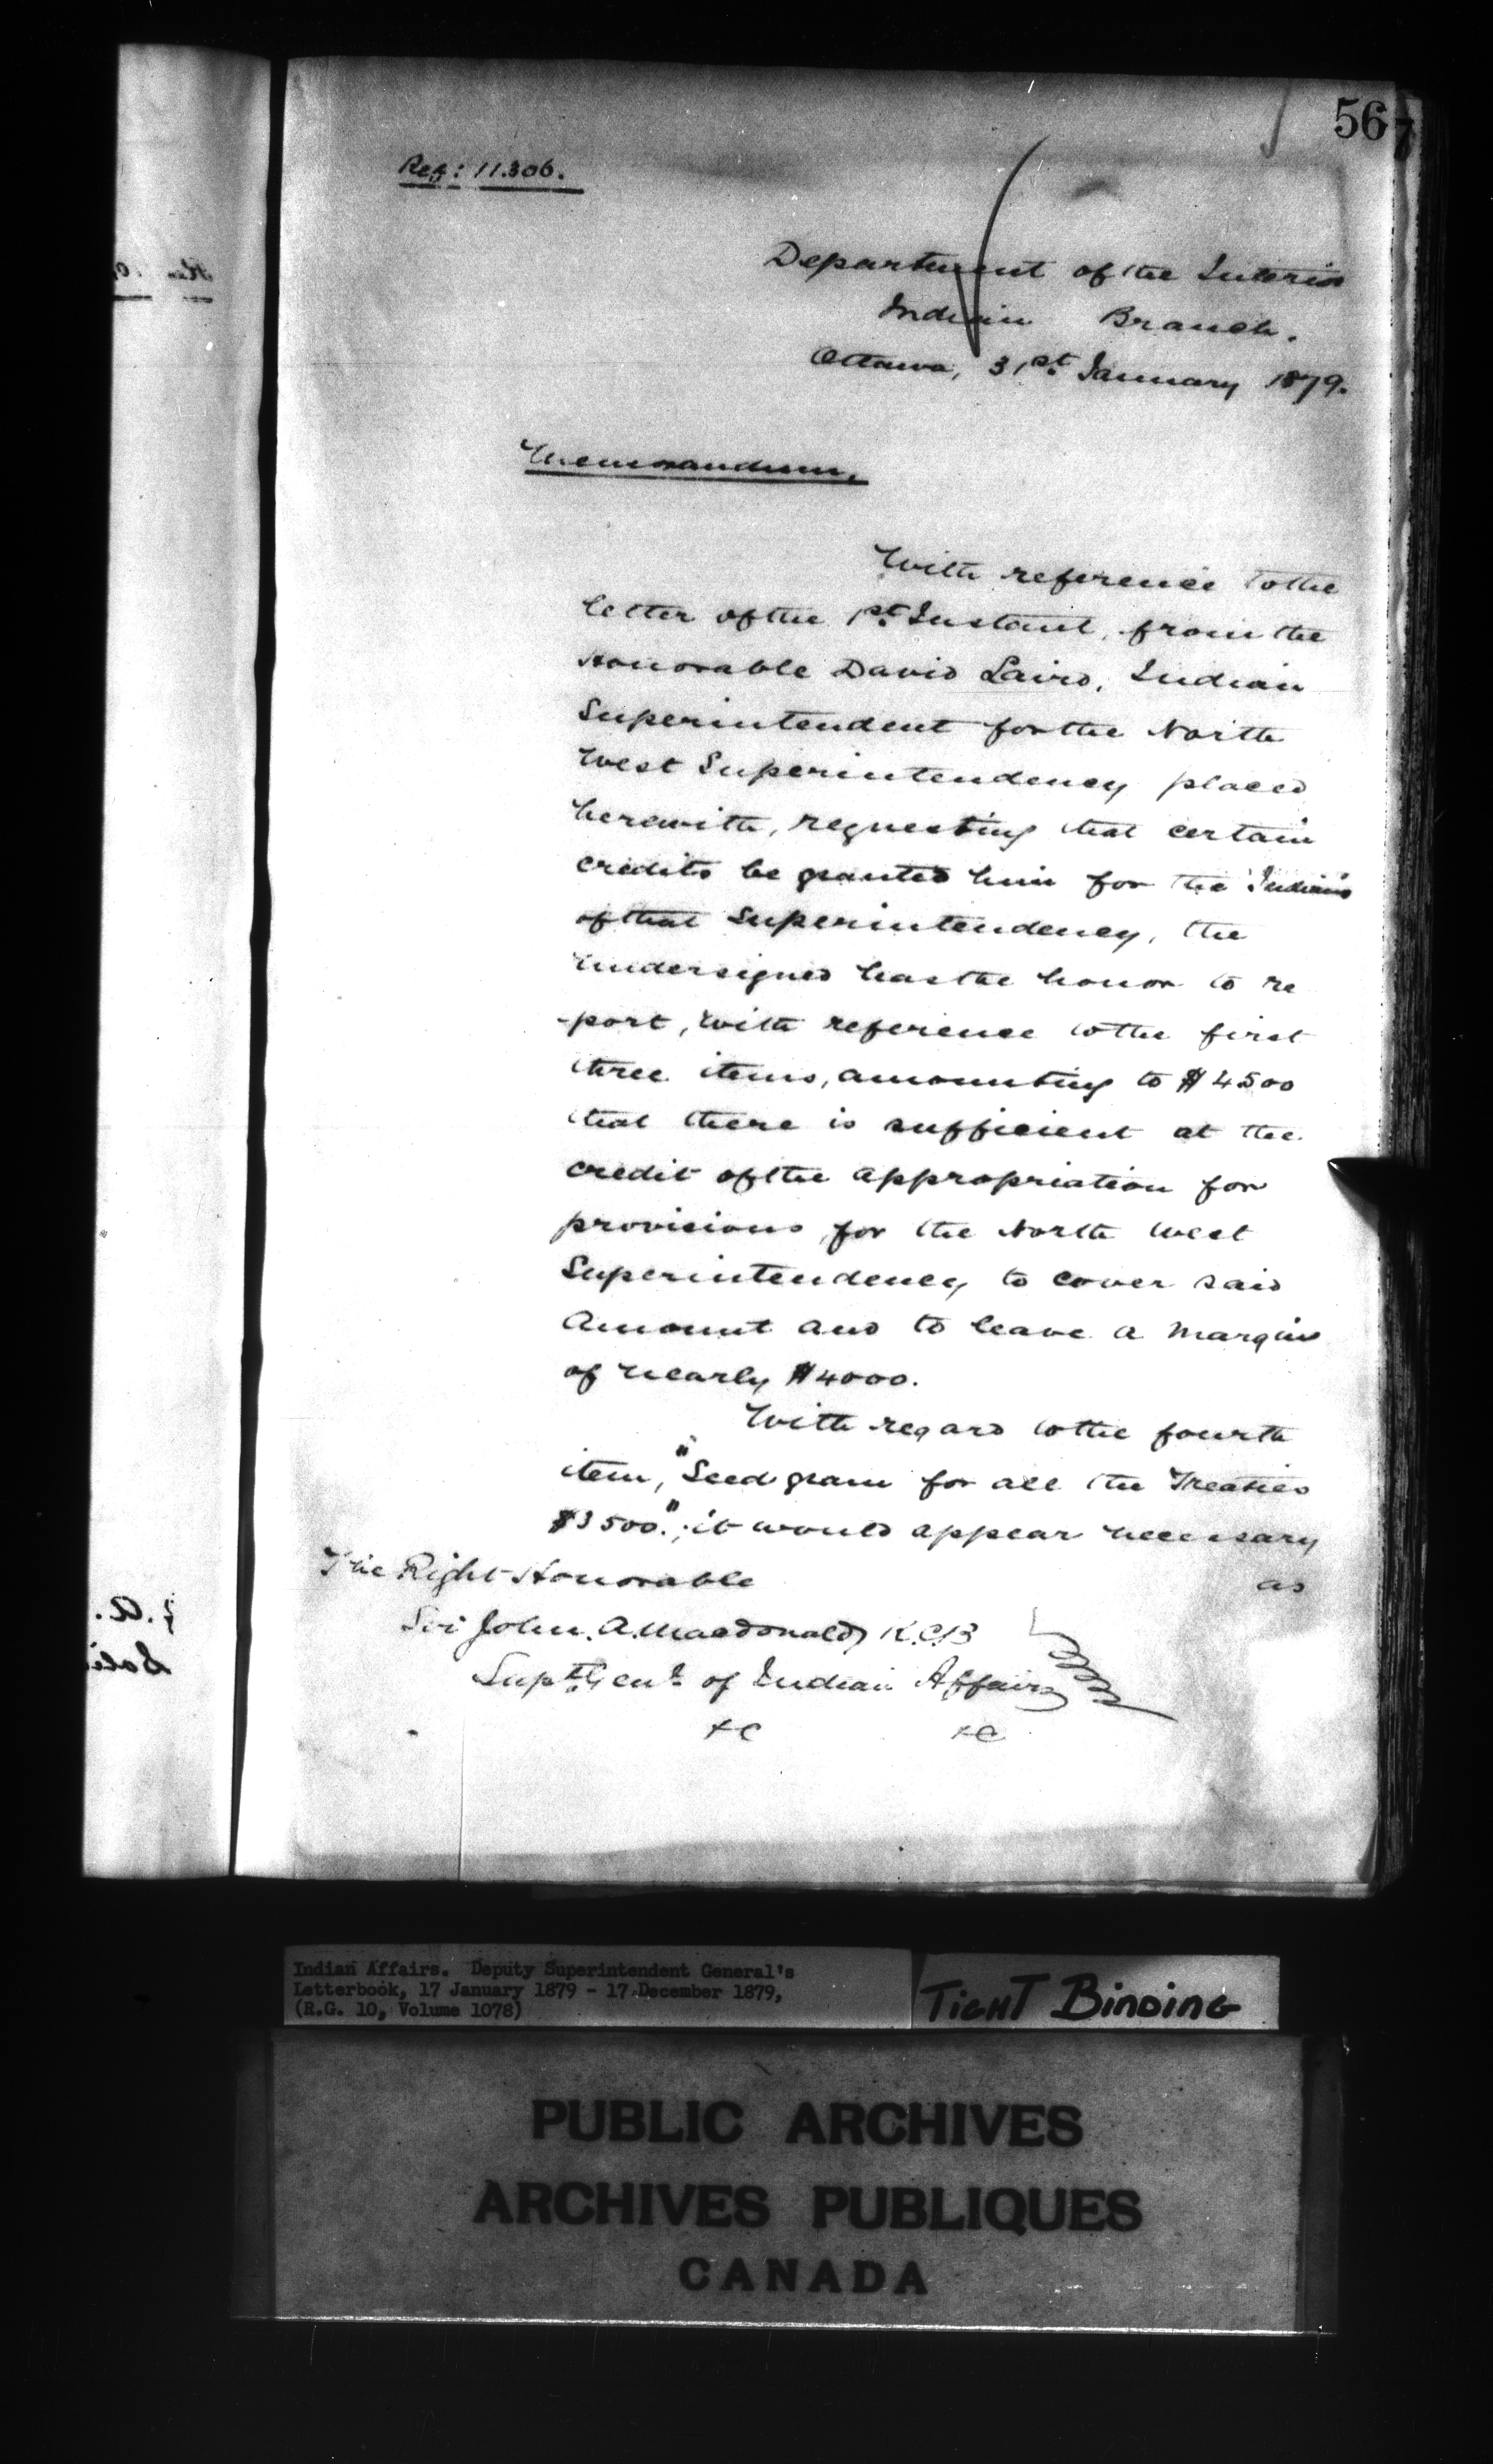 56
Ref: 11.306.
Department of the Interior
Indian Branch.
Ottawa, 31st January 1879.
Memorandum.
With reference to the
letter of the 1st Instant, from the
Honorable David Laird, Indian
Superintendent for the North
West Superintendency placed
herewith, requesting that certain
credits be granted him for the Indians
of that Superintendency, the
undersigned has the honor to re
-port, with reference to the first
three items, amounting to $4500
that there is sufficient at the
credit of the appropriation for
provisions for the North West
Superintendency to cover said
Amount and to leave a margin
of nearly $4000.
With regard to the fourth
item, "Seed grain for all the Treaties
$3500."; it would appear necessary
as
The Right Honorable
Sir John. A. Macdonald, K.C.B
Supt. Genl. of Indian Affairs
&c &c
Indian Affairs. Deputy Superintendent General's
Letterbook, 17 January 1879 - 17 December 1879,
(R.G. 10, Volume 1078)
TIGHT BINDING
PUBLIC ARCHIVES
ARCHIVES PUBLIQUES
CANADA